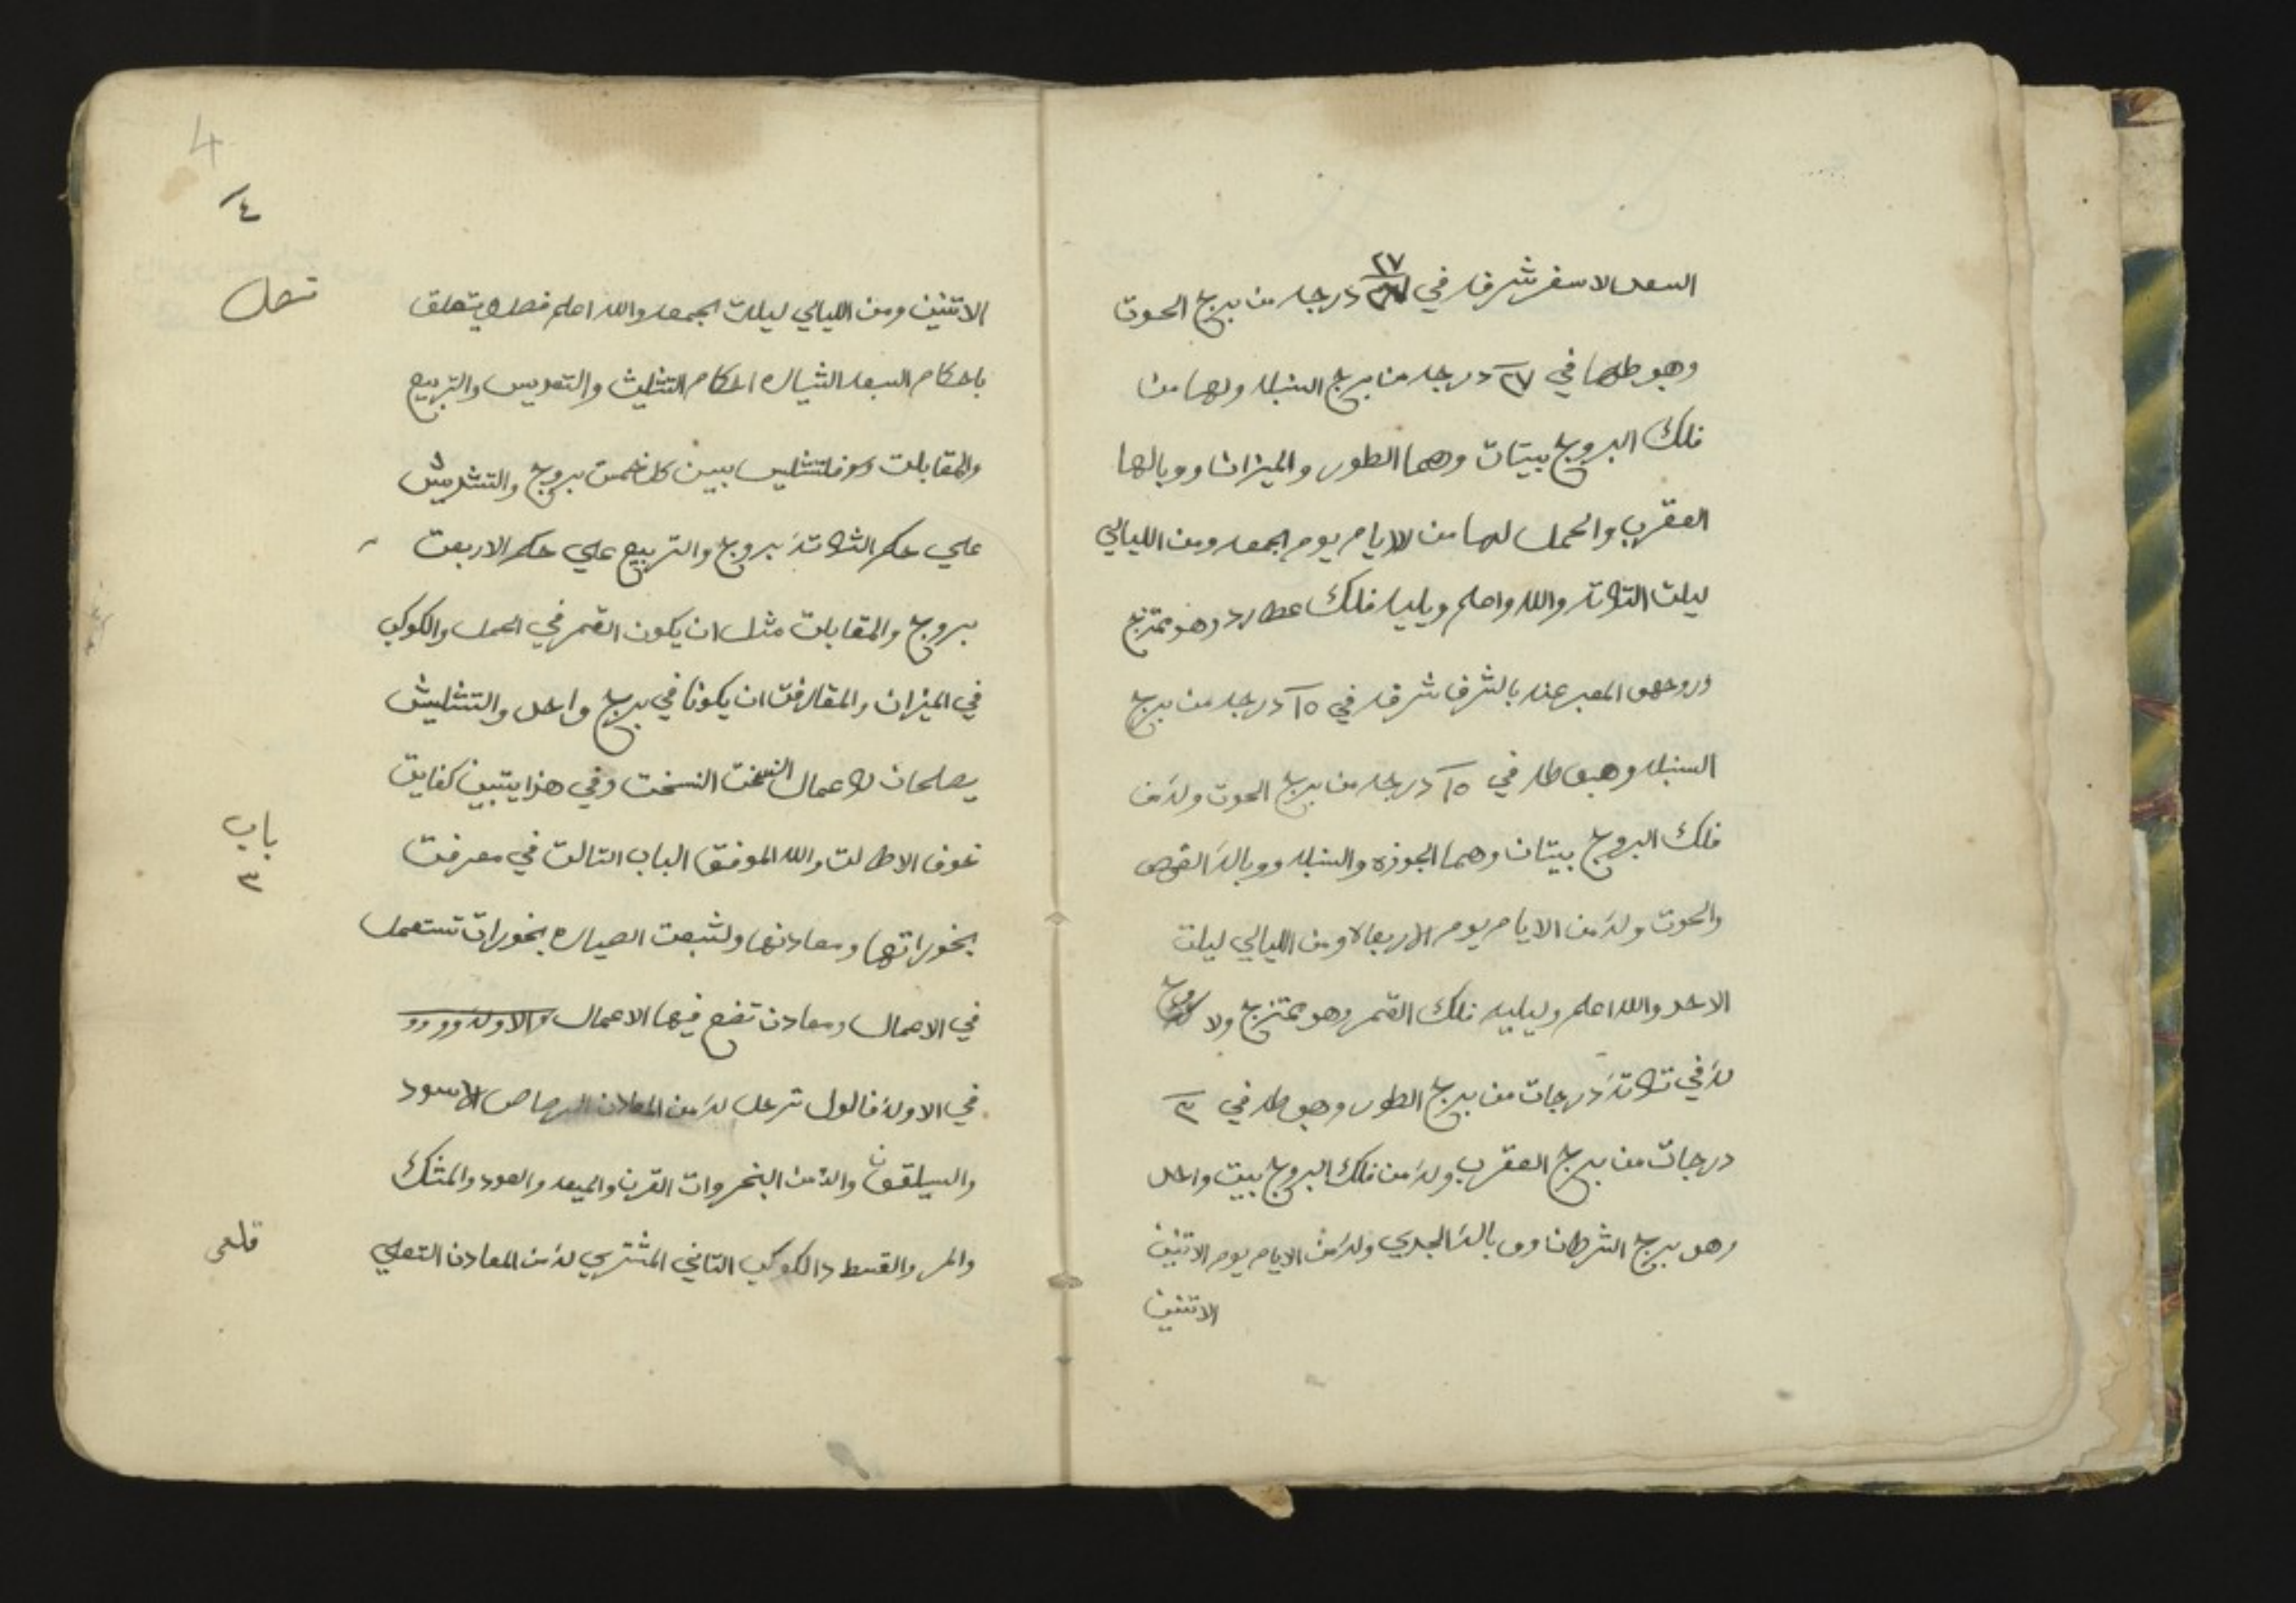 السعد الاسغر شرفه في ٢٧ درجه من برج الحوت
وهبوطها في ٢٧ درجه من برج السنبله ولها من
فلك البروج بيتان وهما الطور والميزان ووبالها
العقرب والحمل لها من الايام يوم الجمعه ومن الليالي
ليلت التلاته والله واعلم ويليه فلك عطارد وهو ممتزج
المعبر عنه بالشرف شرفه في ١٥ درجه من برج
السنبله وهبوطه في ١٥ درجه من برج الحوت وله من
فلك البروج بيتان وهما الجوزه والسنبله ووباله القوص
والحوت وله من الايام يوم الاربعاه ومن الليالي ليلت
الاحد والله اعلم ويليه فلك القمر وهو ممتزج ولا
له في تلاتة درجات من برج الطور وهبوطه في ٣
درجات من برج العقرب وله من فلك البروج بيت واحد
وهو برج الشرطان ووباله الجدي وله من الايام يوم الاتنين
الاتنين
4
٤
الاتنين ومن الليالي ليلت الجمعه والله اعلم فصل ويتعلق
فصل
باحكام السبعه الشياره احكام التثليث والتسديس والتربيع
والمقابلت بيين كل خمست بروج والتشديس
علي حكم الثلاتة بروج والتربيع علي حكم الاربعت
بروج والمقابلت مثل ان يكون القمر في الحمل والكوكب
في الميزان والمقارفت ان يكونا في برج واحد والتشليش
يصلحان لاعمال النسخت وفي هذا يتبين كفايت
خوف الاطالت والله الموفق الباب التالت في معرفت
باب
٣
بخوراتها ومعادنها ولشبعت الصياره بخورات تستعمل
في الاعمال ومعادن تضع فيها الاعمال
في الاوله فالول زحل له من المعادن الرصاص الاسود
والسيلقون والله من البخروات القرن والميعه والعود والمثك
والمر والقسط والكوكب التاني المشتري له من المعادن القعلي
قلعى